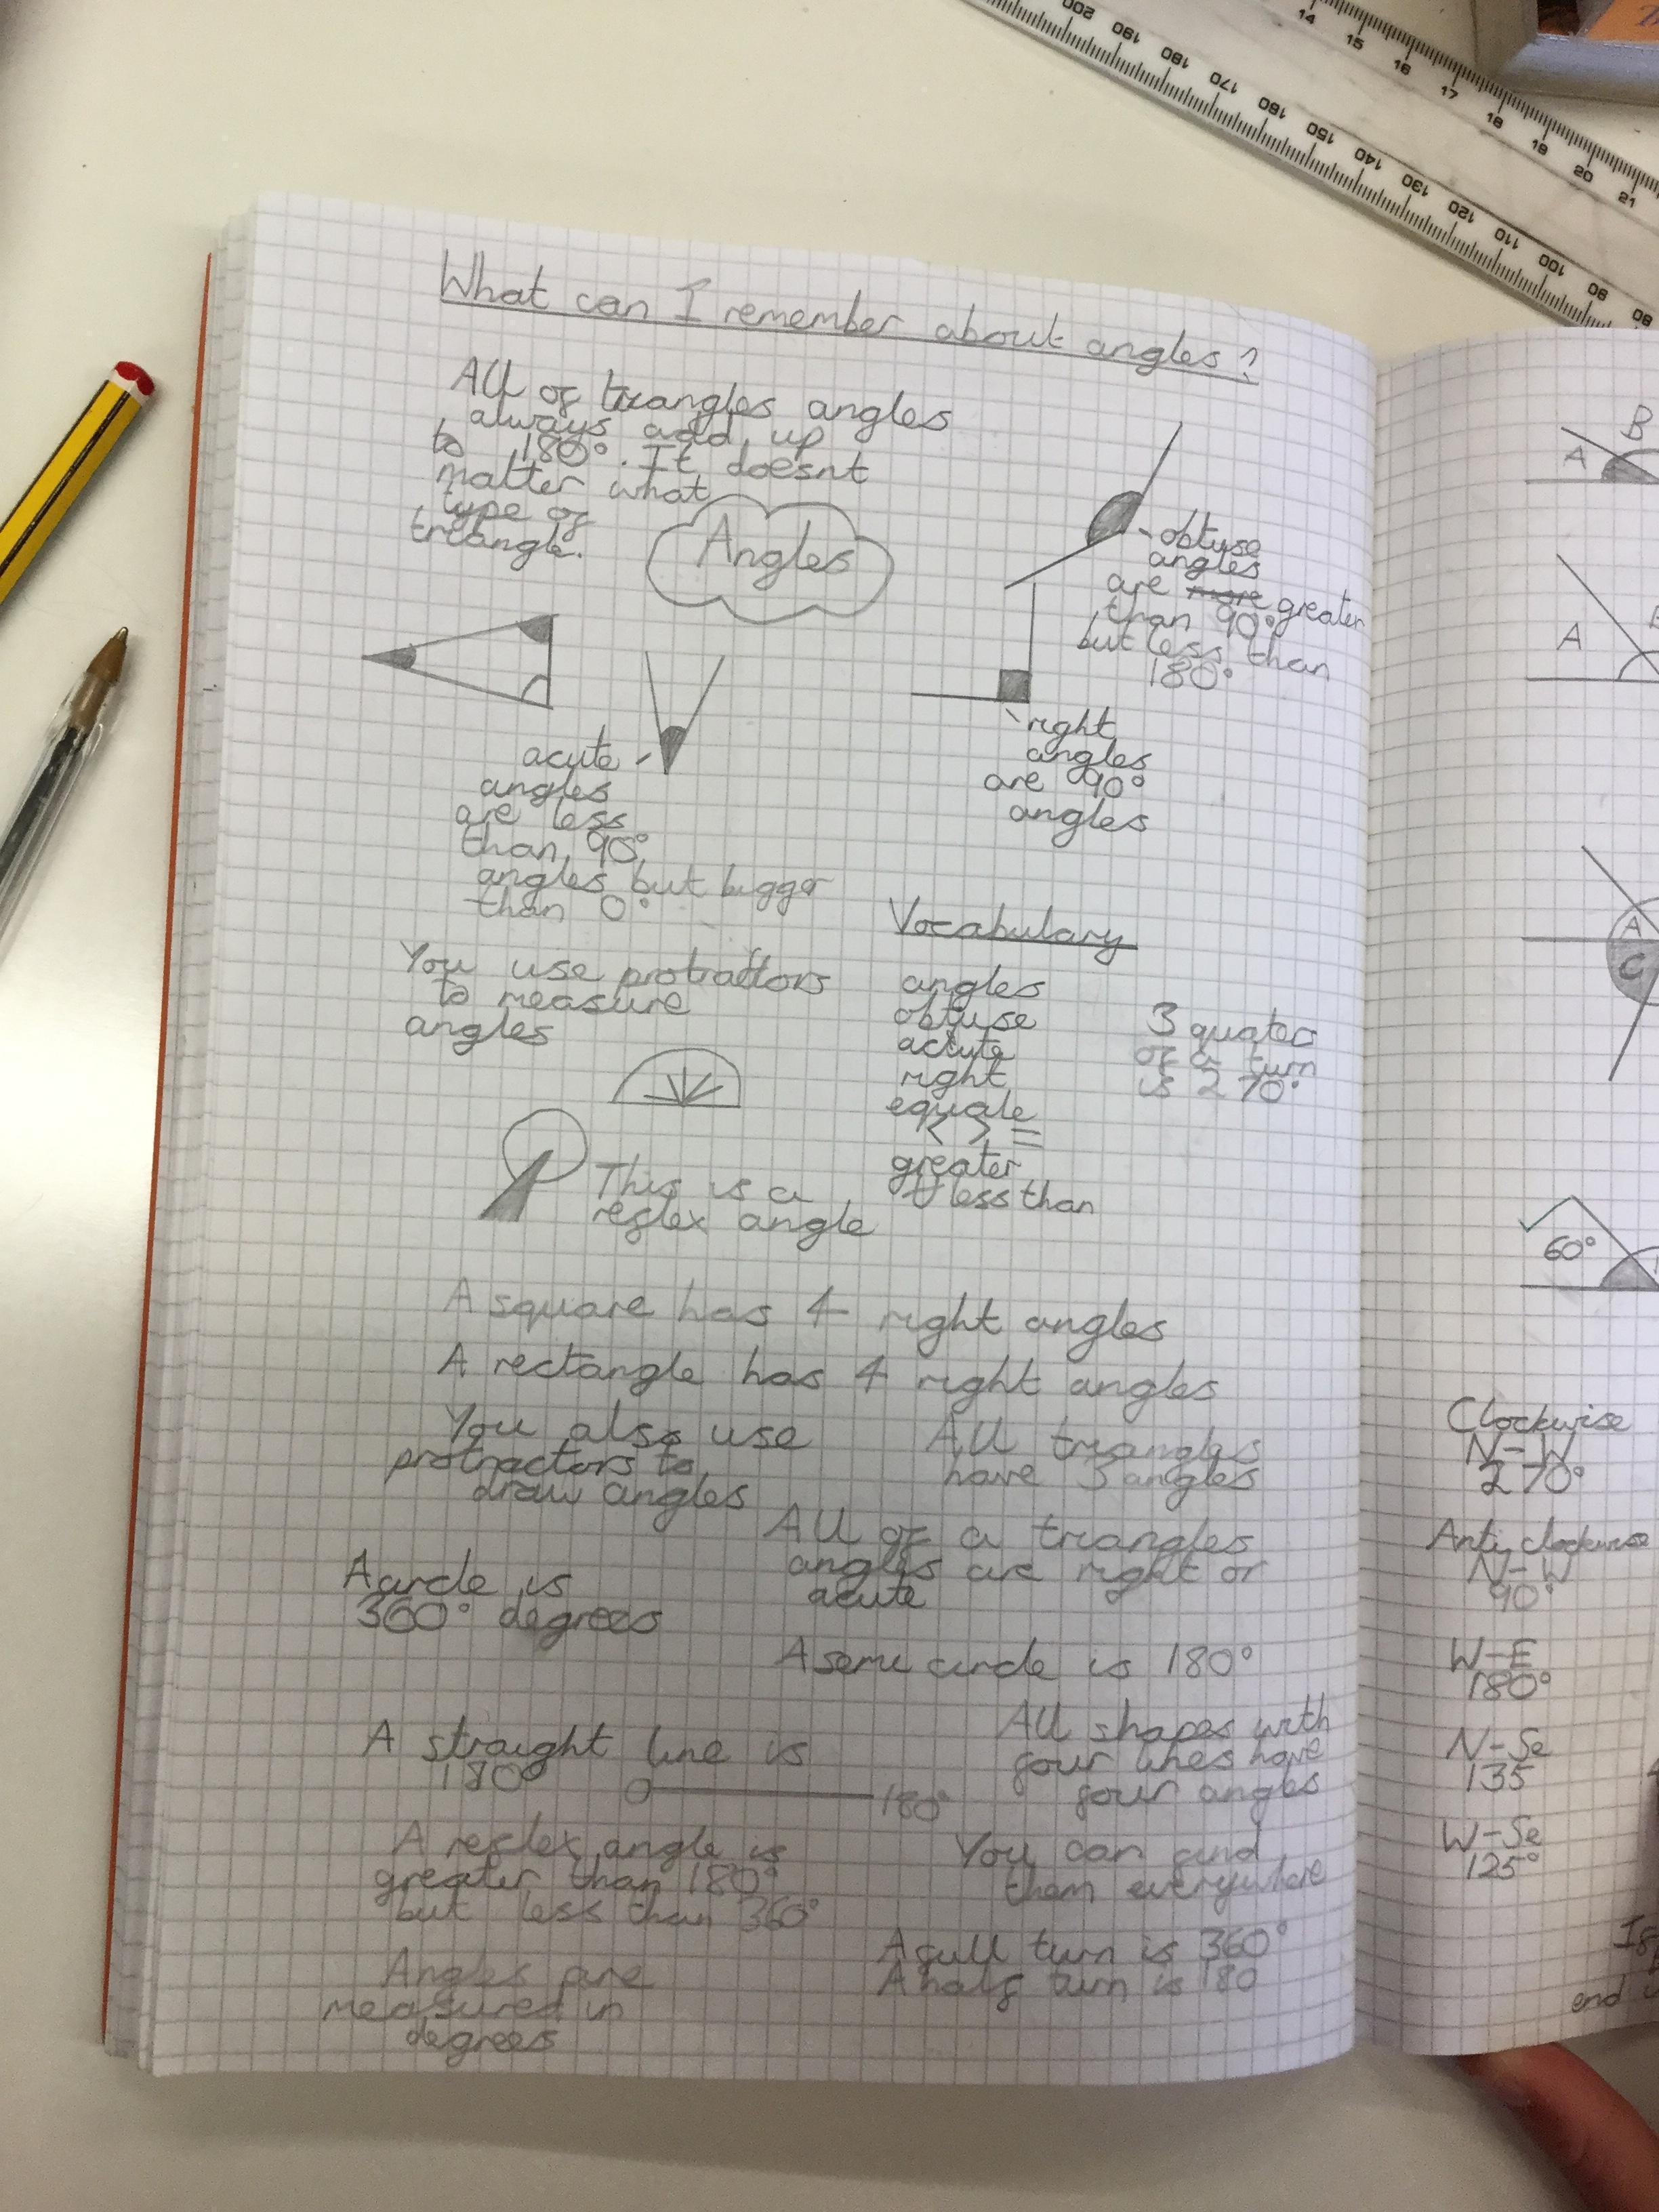 What can I remember about angles?
All of triangles angles
always add up
to 180°. It doesnt
matter what
type of
triangle.
Angles
obtuse
angles
are more greater
than 90°
but less than
180°
right
angles
are 90°
angles
acute
angles
are less
than 90°
angles but bigger
than 0°
You use protractors
to measure
angles
Vocabulary
angles
obtuse
acute
right
equale
< > =
greater
less than
3 quater
of a turn
is 270°
This is a
reflex angle
A square has 4 right angles
A rectangle has 4 right angles
You also use
protractors to
draw angles
All triangles
have 3 angles
All of a triangles
angles are right or
acute
A circle is
360° degrees
A semi circle is 180°
A straight line is
180°
0
180°
All shapes with
four lines have
four angles
A reflex angle is
greater than 180°
but less than 360°
You can find
them everywhere
A full turn is 360°
A half turn is 180
Angles are
measured in
degrees
A
B
A
A
C
60°
Clockwise
N-W
270°
Anti clockwise
N-W
90°
W-E
180°
N-Se
135
W-Se
125°
end
200 190 180 170 160 150 140 130 120 110 100 90 80
14 15 16 17 18 19 20 21